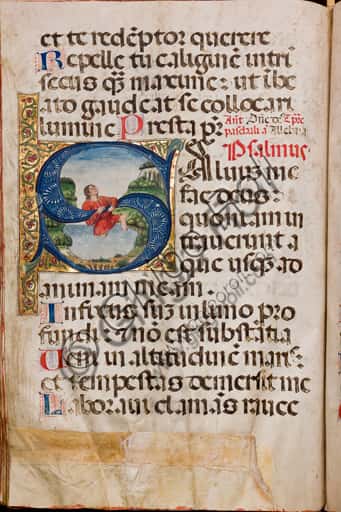 et te redēptor querere
Repelle tu caliginē intrī
secus q̄ȝ maxime: ut ī be
ato gaudeat se collocari
lumine Presta pr̄
Añt
pascali a Alleluia
Psalmus
Saluum me
fac deus:
quoniam in
traverunt a
que usq̄ȝ ad
animam meam.
Infixus suȝ in limo pro
fundi: ⁊ nō est substātia
Ueni in altitudinē maris:
et tempestas demersit me
Laboravi clamās rauce